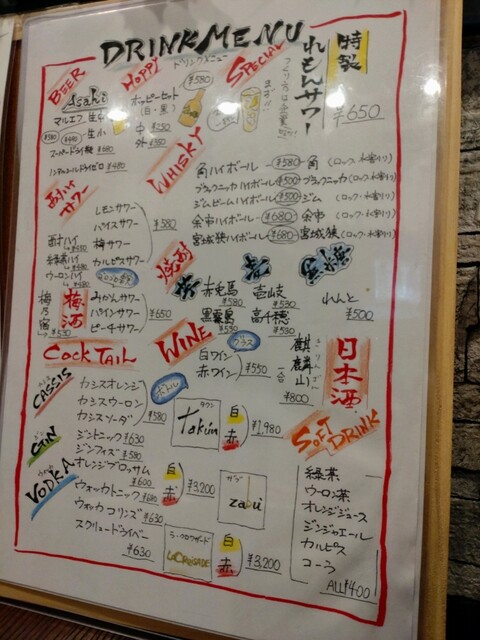 DRINK MENU
ドリンクメニュー
BEER
Asahi
マルエフ 生中
¥580
¥480 生小
スーパードライ瓶 ¥680
ノンアルコール ドライゼロ ¥480
HOPPY
ホッピーセット
(白・黒)
¥580
中 ¥250
外 ¥350
SPECIAL
特製
れもんサワー
¥650
サワー
レモンサワー
バイスサワー
梅サワー
カルピスサワー
¥580
みかんサワー
パインサワー
ピーチサワー
¥650
緑茶ハイ
ウーロンハイ
梅酒
梅乃宿
¥530
WHISKY
角ハイボール ¥580 角 (ロック・水割り)
ブラックニッカハイボール ¥500 ブラックニッカ (ロック・水割り)
ジムビームハイボール ¥500 ジム (ロック・水割り)
余市ハイボール ¥680 余市 (ロック・水割り)
宮城狭ハイボール ¥680 宮城狭 (ロック・水割り)
焼酎
赤兎馬
¥580
黒霧島
¥530
壱岐
¥530
高千穂
¥530
れんと
¥500
COCKTAIL
CASSIS
カシスオレンジ
カシスウーロン
カシスソーダ
¥580
GIN
ジントニック ¥630
ジンフィズ ¥580
オレンジブロッサム
¥600
VODKA
ウォッカトニック ¥680
ウォッカコリンズ ¥630
スクリュードライバー
¥630
WINE
グラス
白ワイン
赤ワイン
¥550
ボトル
タクン
Takun
白
赤
¥1,980
白
赤
¥3,200
ラ・クロワザード
LA CROISADE
白
赤
¥3,200
日本酒
麒麟山
きりんざん
一合
¥800
SOFT DRINK
緑茶
ウーロン茶
オレンジジュース
ジンジャエール
カルピス
コーラ
ALL ¥400